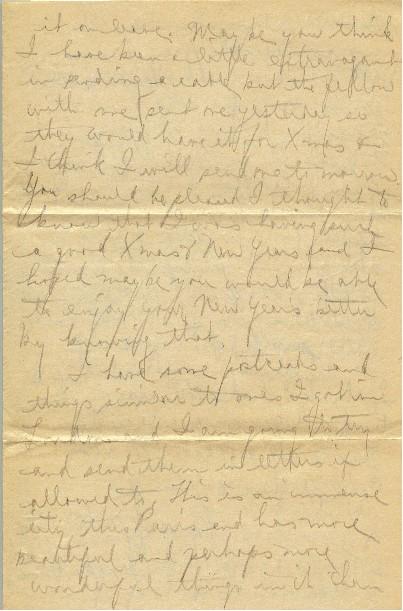 it on leave. Maybe you think
I have been a little extravagant
in sending a cable but the fellow
with me sent one yesterday so
they would have it for Xmas &
I think I will send one tomorrow.
You should be pleased I thought to
know that I was having such
a good Xmas & New Years and I
hoped maybe you would be able
to enjoy your New Year's better
by knowing that.
I have some postcards and
things similar to ones I got in
London and I am going to try
and send them in letters if
allowed to. This is an immense
city this Paris and has more
beautiful and perhaps more
wonderful things in it than